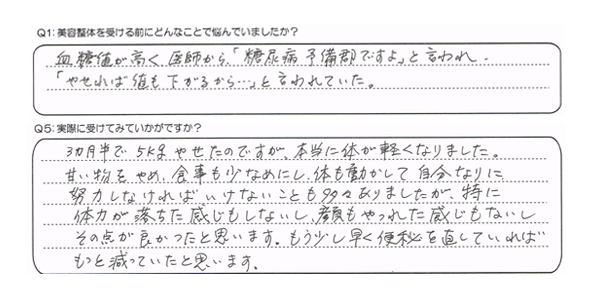 Q1：美容整体を受ける前にどんなことで悩んでいましたか？
血糖値が高く、医師から、「糖尿病予備郡ですよ」と言われ、
「やせれば値も下がるから…」と言われていた。
Q5：実際に受けてみていかがですか？
3カ月半で5kgやせたのですが、本当に体が軽くなりました。
甘い物をやめ、食事も少なめにし、体も動かして自分なりに
努力しなければいけないことも多々ありましたが、特に
体力が落ちた感じもしないし、顔もやつれた感じもないし
その点が良かったと思います。もう少し早く便秘を直していれば
もっと減っていたと思います。